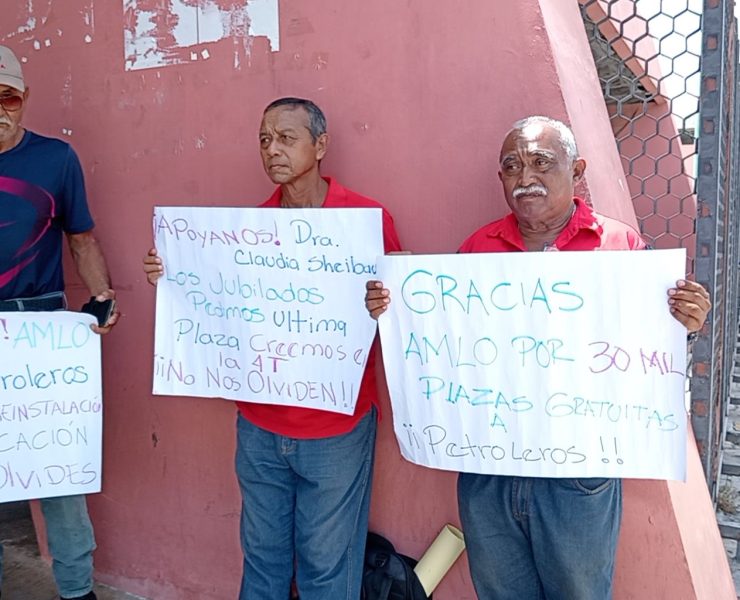 ! AMLO
roleros
EINSTALACIÓ
CACIÓN
OLVIDES
¡APOYANOS! Dra.
Claudia Sheibau
Los Jubilados
Pedimos Ultima
Plaza Creemos e
la 4T
¡¡No Nos OLVIDEN!!
GRACIAS
AMLO POR 30 MIL
PLAZAS GRATUITAS
A
¡¡Petroleros!!